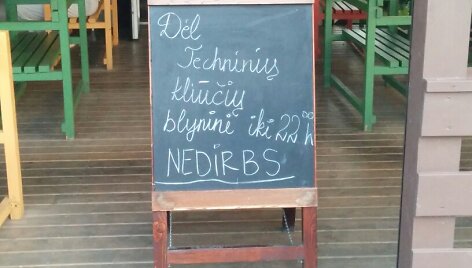 Dėl
Techninių
kliūčių
blyninė iki 22ºº h
NEDIRBS